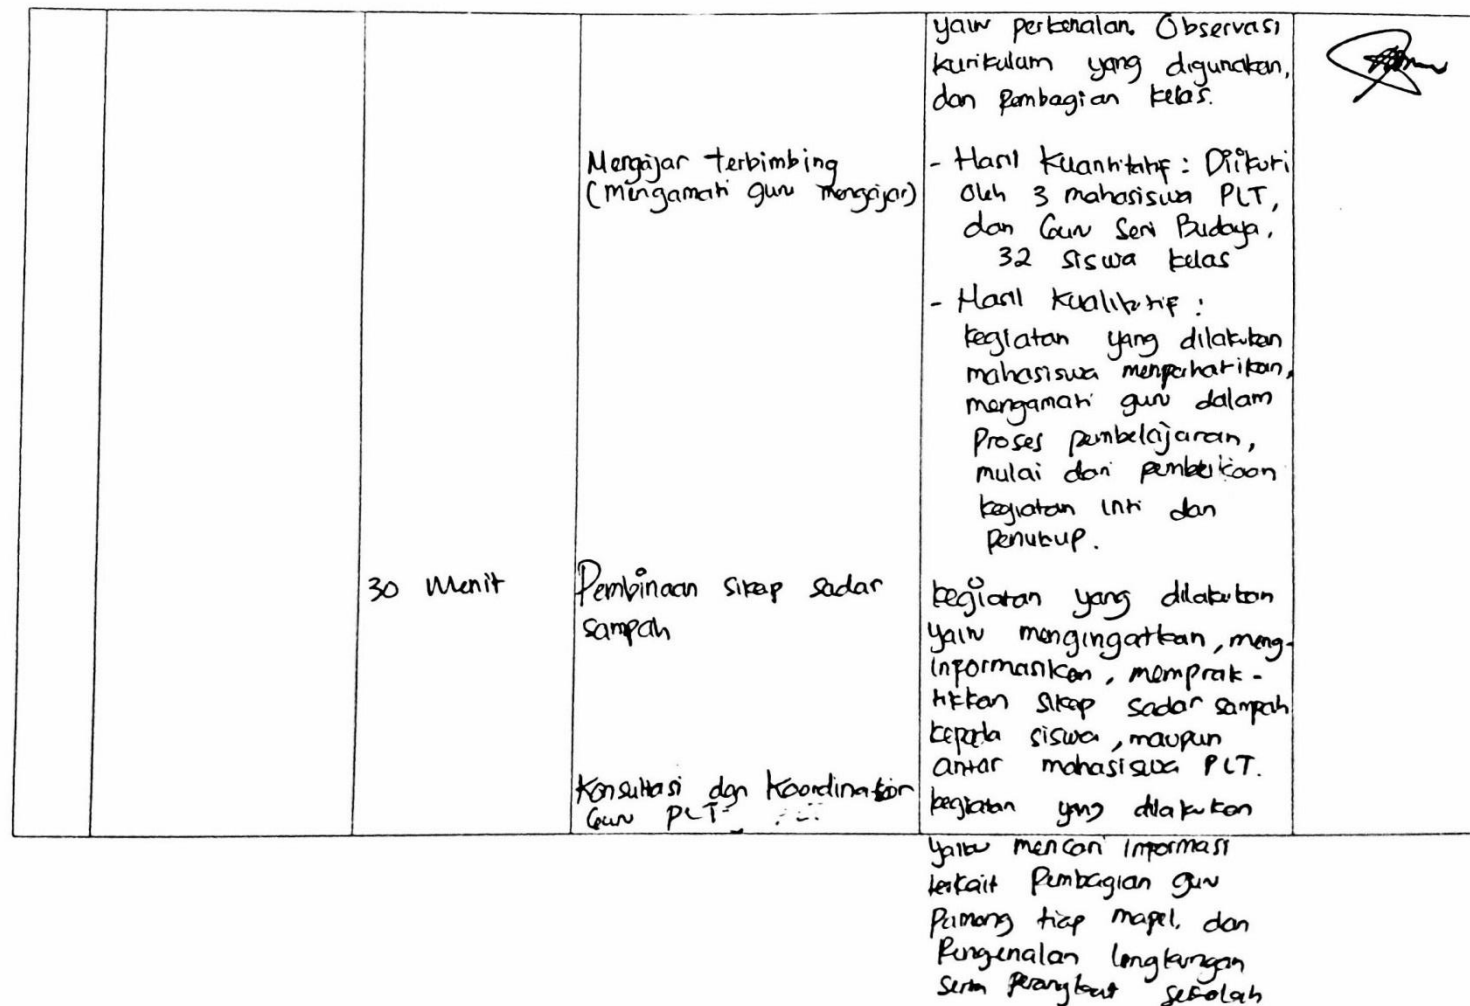 yaitu perkenalan. Observasi
kurikulum yang digunakan,
dan pembagian kelas.
Mengajar terbimbing
(mengamati guru mengajar)
- Hasil Kuantitatif : Diikuti
oleh 3 mahasiswa PLT,
dan Guru Seni Budaya,
32 siswa kelas
- Hasil Kualitatif :
kegiatan yang dilakukan
mahasiswa memperhatikan,
mengamati guru dalam
proses pembelajaran,
mulai dari pembukaan
kegiatan inti dan
penutup.
30 Menit
Pembinaan sikap sadar
sampah
kegiatan yang dilakukan
yaitu mengingatkan, meng-
informasikan, memprak-
tikkan sikap sadar sampah
kepada siswa, maupun
antar mahasiswa PLT.
Konsultasi dgn Koordinator
Guru PLT
kegiatan yang dilakukan
yaitu mencari informasi
terkait Pembagian guru
Pamong tiap mapel, dan
Pengenalan lingkungan
serta perangkat sekolah